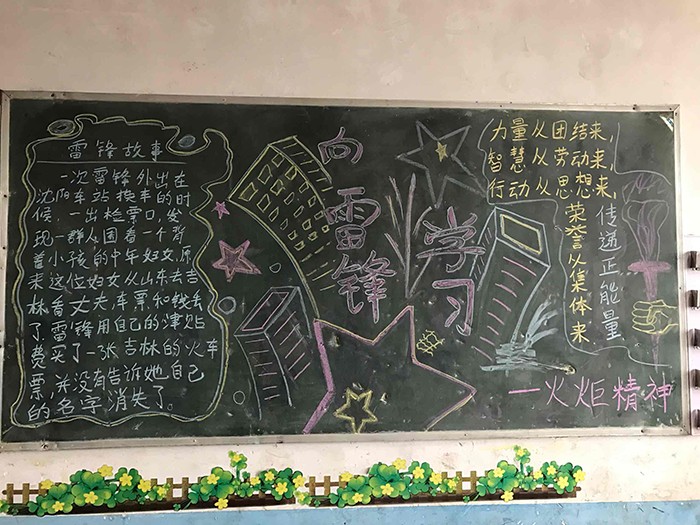 雷锋故事
一次雷锋外出在
沈阳车站换车的时
候,一出检票口,发
现一群人围着一个背
着小孩的中年妇女,原
来这位妇女从山东去吉
林看丈夫,车票和钱丢
了,雷锋用自己的津贴
费买了一张吉林的火车
票,并没有告诉她自己
的名字消失了。
向雷锋
学习
力量从团结来,
智慧从劳动来,
行动从思想来,
荣誉从集体来
传递正能量
一火炬精神